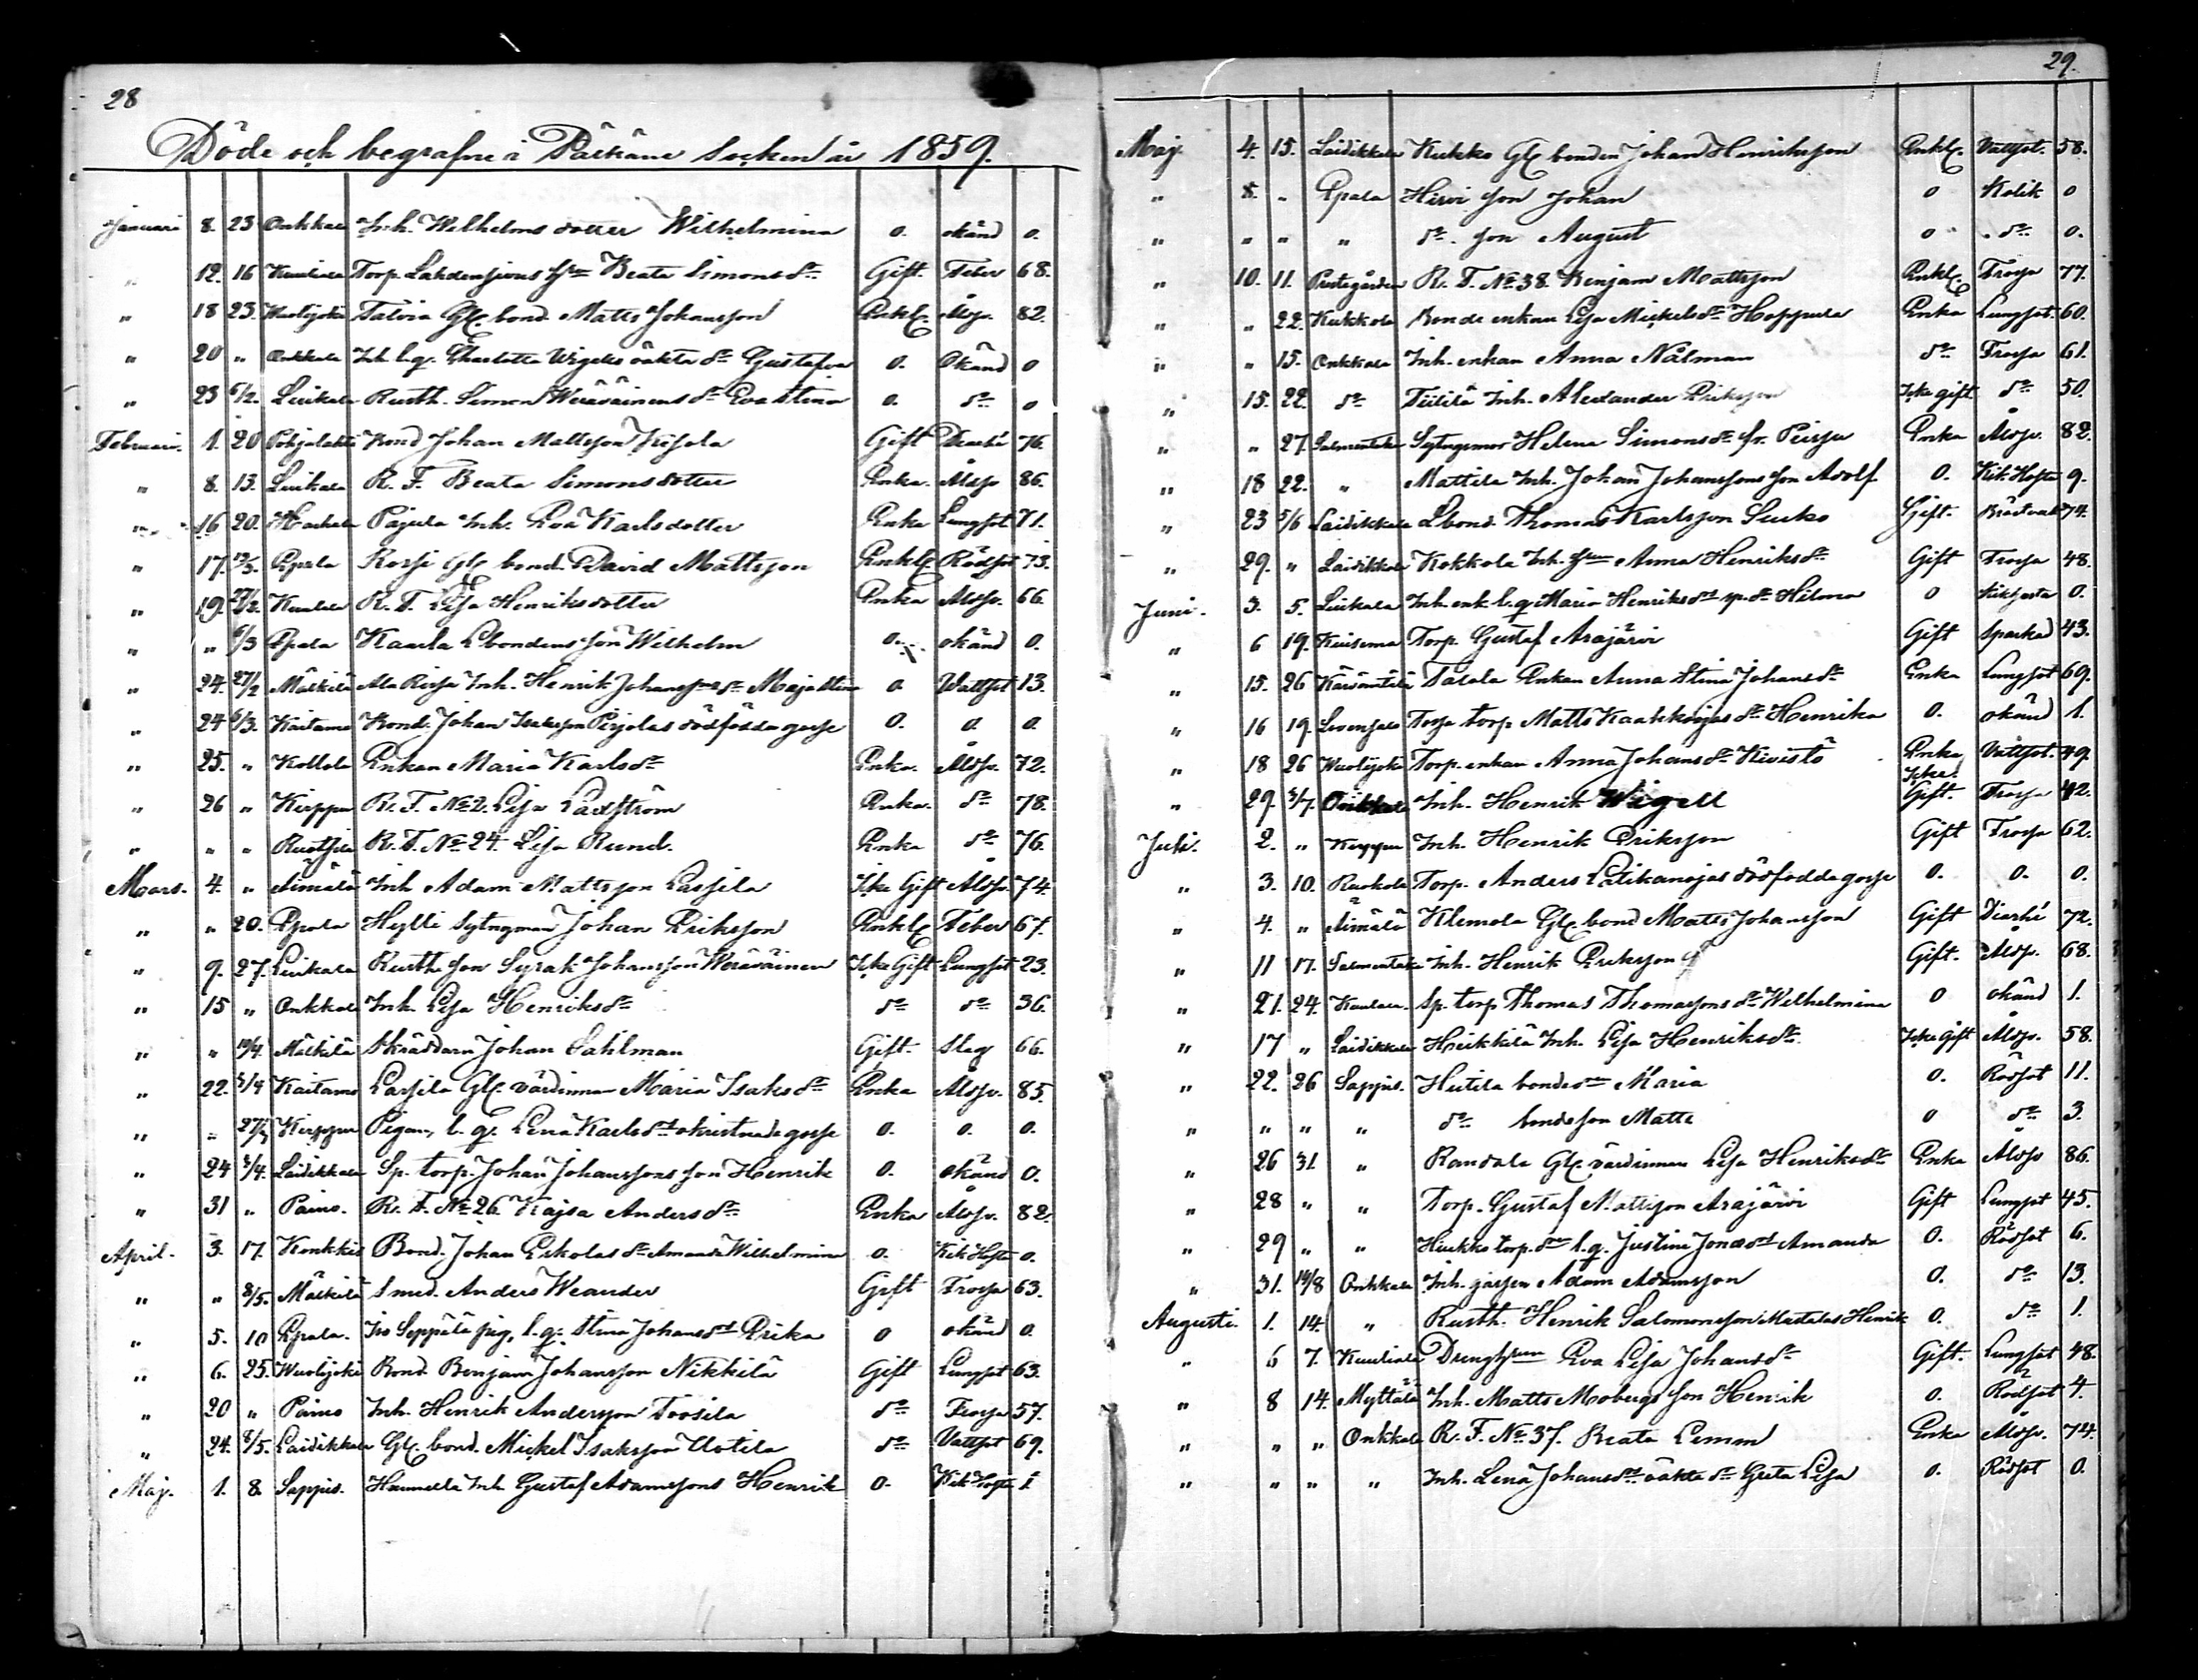 28
Döde och begrafne i Pälkäne Socken år 1859.
Januari 8. 23 Onkkala Inh. Wilhelms dotter Wilhelmina 0. okänd 0.
" 12. 16 Kuuliala Torp. Lahdensivus hu Beata Simons dr Gift. Feber 68.
" 18 23. Wuolijoki Taivia Gl. bond. Matts Johansson Enkl. Åldr. 82.
" 20 " Onkkala Inh. l. q. Charlotta Wigelis oäkta dr Gustafva 0. Okänd 0
" 23 6/2. Luikala Rusth. Simon Weräväinens dr Eva Stina 0. do 0
Februari. 1. 20 Pohjalahti Bond Johan Mattsson Gift Diarhé 76.
" 8. 13. Luikala R. F. Beata Simonsdotter Enka. Åldr 86.
" 16 20. Harhala Pajula Inh. Eva Karlsdotter Enka Lungsot 71.
" 17. 13/3. Epala Rossi Gl. bond. David Mattsson Enkl. Rödsot 73.
" 19. 27/2. Kuulala R. F. Lisa Henriksdotter Enka Åldr. 66
" " 6/3 Epala Kaarla Lbondens son Wilhelm 0. okänd 0.
" 24. 27/2 Mälkilä Ala Rissa Inh. Henrik Johanssons dr Maja Stina 0 Wattsot 13.
" 24 6/3. Kaitamo Bond. Johan Isaksson Pirjolas dödfödda gosse 0. 0. 0.
" 25. " Kollola Enkan Maria Karlsdr Enka. Åldr. 72.
" 26 " Kirppu R. F. No 2. Lisa Ladström Enka. do 78.
" " " Ruotsila R. F. No 24 Lisa Rund. Enka do 76.
Mars. 4. " Äimälä Inh Adam Mattsson Lassila Icke Gift Åldr. 74.
" " 20. Epala Hylli Sytngman Johan Eriksson Enkl. Feber 67.
" 9. 27. Luikala Rusth. son Syrak Johansson Weräväinen Icke Gift Lungsot 23.
" 15 " Onkkala Inh. Lisa Henriksdr do do 36.
" " 10/4. Mälkilä Skräddarn Johan Sahlman Gift. Slag 66.
" 22. 3/4 Kaitamo Lassila Gl. värdinnan Maria Isaksdr Enka Åldr. 85.
" " 27/3 Kirppu Pigan, l. q. Lena Karlsdrs okristnade gosse 0. 0. 0.
" 24 3/4. Laidikkala Sp. torp. Johan Johanssons son Henrik 0. okänd 0.
" 31 " Painos. R. F. No 26. Kajsa Andersdr Enka Åldr. 82.
April. 3. 17. Kankkis Bond. Johan Eskolas dr Amanda Wilhelmina 0. Kik Hosta 0.
" " 8/5. Mälkilä Smed. Anders Weander Gift Frossa 63.
" 5. 10 Epala. Iso Seppälä pig, l. q. Stina Johansdrs Erika 0 okänd 0.
" 6. 25. Wuolijoki Bond. Benjam Johansson Nikkilä Gift Lungsot 63.
" 20 " Painos Inh. Henrik Andersson Toosila do Frossa 57.
" 24. 8/5. Laidikkala Gl. bond. Mickel Isaksson Uotila do Vattsot 69.
Maj. 1. 8. Sappis. Hannula Inh. Gustaf Adamssons Henrik 0. Kik Hosta 1.
29.
Maj. 4. 15. Laidikkala Kukko Gl. bonden Johan Henriksson Enkl. Vattsot. 58.
" 8. " Epala Hirvi son Johan 0 Kolik 0
" " " " do son August 0 do 0.
" 10. 11. Prestegården R. F. No 38. Benjam Mattsson Enkl. Frossa 77.
" " 22. Kukkola Bonde enkan Lisa Mickelsdr Hoppula Enka Lungsot. 60.
" " 15. Onkkala Inh. enkan Anna Nålman do Frossa 61.
" 15. 22. do Tiitilä Inh. Alexander Eriksson Icke gift do 50.
" " 27. Salmentaka Sytngmor Helena Simonsdr fr. Enka Åldr. 82.
" 18 22. " Mattila Inh. Johan Johanssons son Adolf 0. Kik Hosta 9.
" 23 5/6 Laidikkala Lbond. Thomas Karlsson Suuko Gift. 74.
" 29. " Laidikkala Kokkola Inh. hun Anna Henriksdr Gift Frossa 48.
Juni. 3. 5. Luikala Inh. enk. l. q. Maria Henriksdrs sp. dr Hilma 0 0.
" 6 19. Kuisema Torp. Gustaf Arajärvi Gift Sparkad 43.
" 15. 26 Tasala Enkan Anna Stina Johansdr Enka Lungsot 69.
" 16 19. torp. Matts dr Henrika 0. okänd 1.
" 18 26 Wuolijoki Torp. enkan Anna Johansdr Kivistö Enka Vattsot. 49.
" 29. 3/7. Onkkala Inh. Henrik Wigell Icke Gift. Frossa 42.
Juli. 2. " Kirppu Inh. Henrik Eriksson Gift Frossa 62.
" 3. 10. Ruokola Torp. Anders Lätikanojas dödfödda gosse 0. 0. 0.
" 4. " Äimälä Klemola Gl. bond Matts Johansson Gift Diarhé 72.
" 11 17. Salmentaka Inh. Henrik Eriksson Gift. Åldr. 68.
" 21. 24. Kuulala. Sp. torp Thomas Thomassons dr Wilhelmina 0 okänd 1.
" 17 " Laidikkala Heikkilä Inh. Lisa Henriksdr Icke Gift Åldr. 58.
" 22. 26 Sappis. Hutila bondedr Maria 0. Rödsot 11.
" " " " do bondeson Matts 0 do 3.
" 26 31. " Randala Gl. värdinnan Lisa Henriksdr Enka Åldr 86.
" 28 " " Torp. Gustaf Mattsson Arajärvi Gift Lungsot 45.
" 29 " " Hiukko torp. dr l. q. Justina Jonasdrs Amanda 0. Rödsot 6.
" 31. 14/8 Onkkala Inh. gossen Adam Adamsson 0. do 13.
Augusti. 1. 14. " Rusth. Henrik Salomonsson Mattalas Henrik 0. do 1.
" 6 7. Kuuliala Drenghun Eva Lisa Johansdr Gift. Lungsot 48.
" 8 14. Myttälä Inh. Matts Mobergs son Henrik 0. Rödsot 4.
" " " Onkkala R. F. No 37. Beata Lemm Enka Åldr. 74.
" " " " Inh. Lena Johansdrs oäkta dr Greta Lisa 0. Rödsot 0.